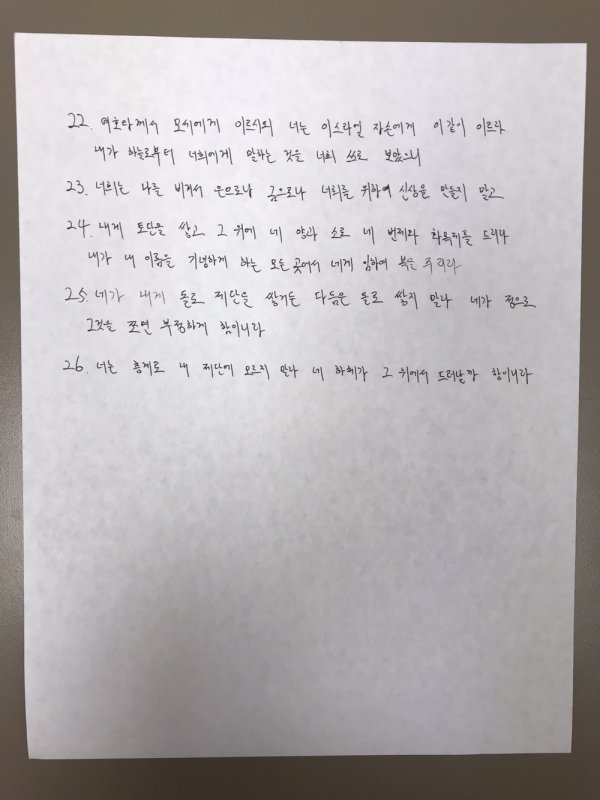 22. 여호와께서 모세에게 이르시되 너는 이스라엘 자손에게 이같이 이르라
내가 하늘로부터 너희에게 말하는 것을 너희 스스로 보았으니
23. 너희는 나를 비겨서 은으로나 금으로나 너희를 위하여 신상을 만들지 말고
24. 내게 토단을 쌓고 그 위에 네 양과 소로 네 번제와 화목제를 드리라
내가 내 이름을 기념하게 하는 모든 곳에서 네게 임하여 복을 주리라
25. 네가 내게 돌로 제단을 쌓거든 다듬은 돌로 쌓지 말라 네가 정으로
그것을 쪼면 부정하게 함이니라
26. 너는 층계로 내 제단에 오르지 말라 네 하체가 그 위에서 드러날까 함이니라